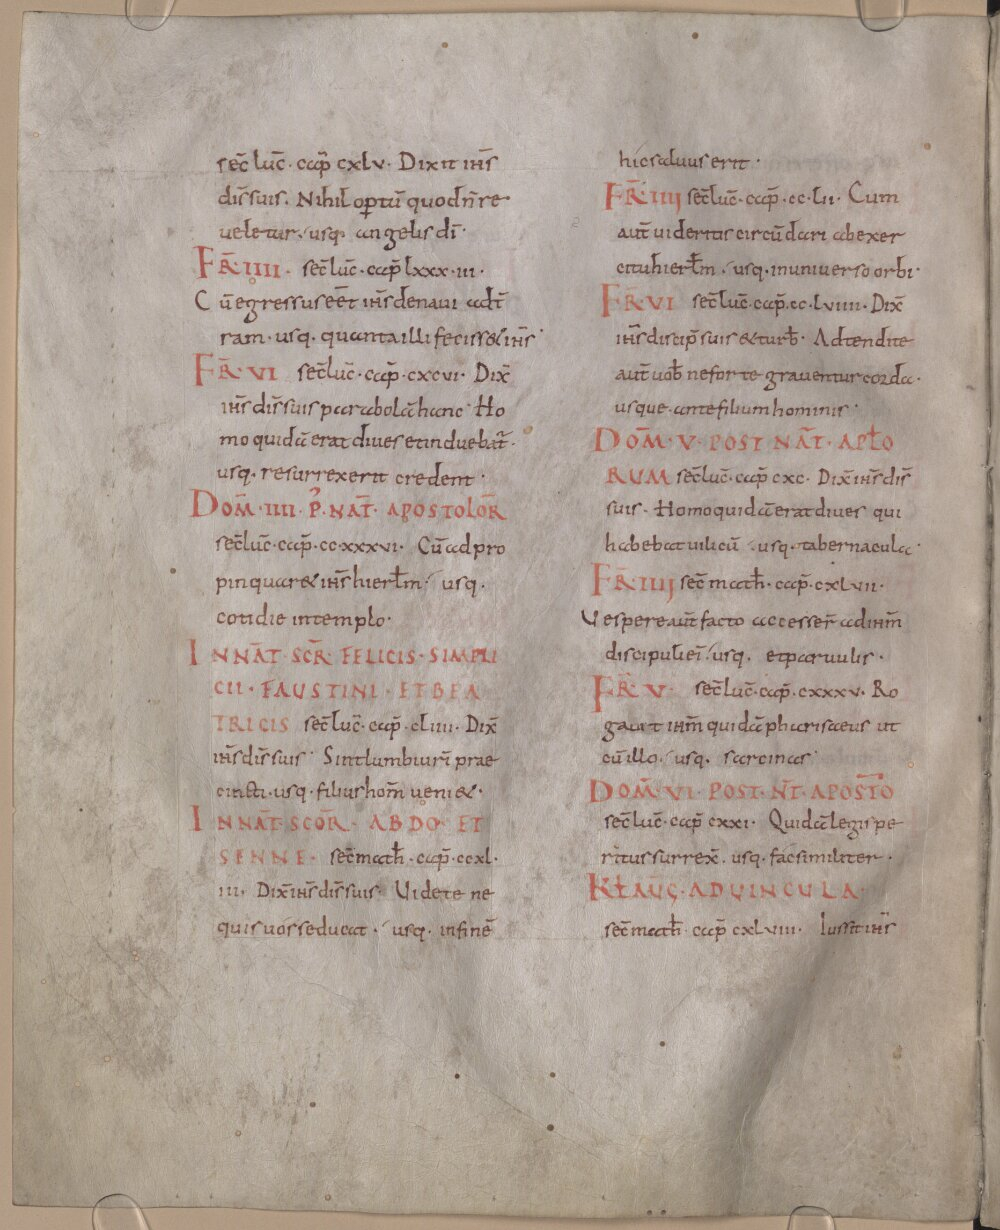 sec̄ luc̄· cap̄ cxlv· Dixit ihs̄
dis̄ suis. Nihil optū quod n̄ re
veletur· usq· angelis dī·
FR̄ IIII· sec̄ luc̄· cap̄ lxxx·iii·
Cū egressus eēt ihs̄ de naui ad t̄
ram· usq· quanta illi fecisset ihs̄·
FR̄ VI sec̄ luc̄· cap̄· cxcvi· Dix̄
ihs̄ dis̄ suis parabolā hanc· Ho
mo quidā erat dives et induebat̄·
usq· resurrexerit credent·
DOM̄· IIII· P̄· NAT̄· APOSTOLOR̄
sec̄ luc̄· cap̄· cc·xxxvi· Cū ad pro
pinquaret ihs̄ hierłm· usq·
cotidie in templo·
IN NAT̄ SCR̄ FELICIS· SIMPLI
CII· FAUSTINI· ET BEA
TRICIS sec̄ luc̄· cap̄· cliiii· Dix̄
ihs̄ dis̄ suis· Sint lumbi urī prae
cincti· usq· filius hom̄ veniet·
IN NAT̄ SCOR̄· ABDO· ET
SENNE· sec̄ math̄· cap̄· ccxl·
iii· Dix̄ ihs̄ dis̄ suis· Videte ne
quis vos seducat· usq· in finē
hic saluus erit·
FR̄ IIII sec̄ luc̄· cap̄· cc·lii· Cum
aut̄ videritis circūdari ab exer
citu hierłm· usq· in universo orbi·
FR̄ VI sec̄ luc̄· cap̄· cc·lviiii· Dix̄
ihs̄ discip̄ suis et turb̄· Adtendite
aut̄ uob̄ ne forte graventur corda·
usque· ante filium hominis·
DOM̄· V· POST NAT̄· APŁO
RUM sec̄ luc̄· cap̄ cxc· Dix̄ ihs̄ dis̄
suis· Homo quidā erat dives qui
habebat vilicū· usq· tabernacula·
FR̄ IIII sec̄ math̄· cap̄· cxlvii·
Vespere aut̄ facto accesser̄ ad ihm̄
discipuli ei᷒· usq· et parvulis·
FR̄ V· sec̄ luc̄· cap̄· cxxxv· Ro
gavit ihm̄ quidā pharisaeus ut
cū illo· usq· sarcinas·
DOM̄· VI· POST· NT̄· APOSTO
sec̄ luc̄· cap̄ cxxi· Quidā legis pe
ritus surrex̄· usq· fac similiter·
KŁ AUG̅· AD VINCULA
sec̄ math̄· cap̄ cxlviii· Iussit ihs̄